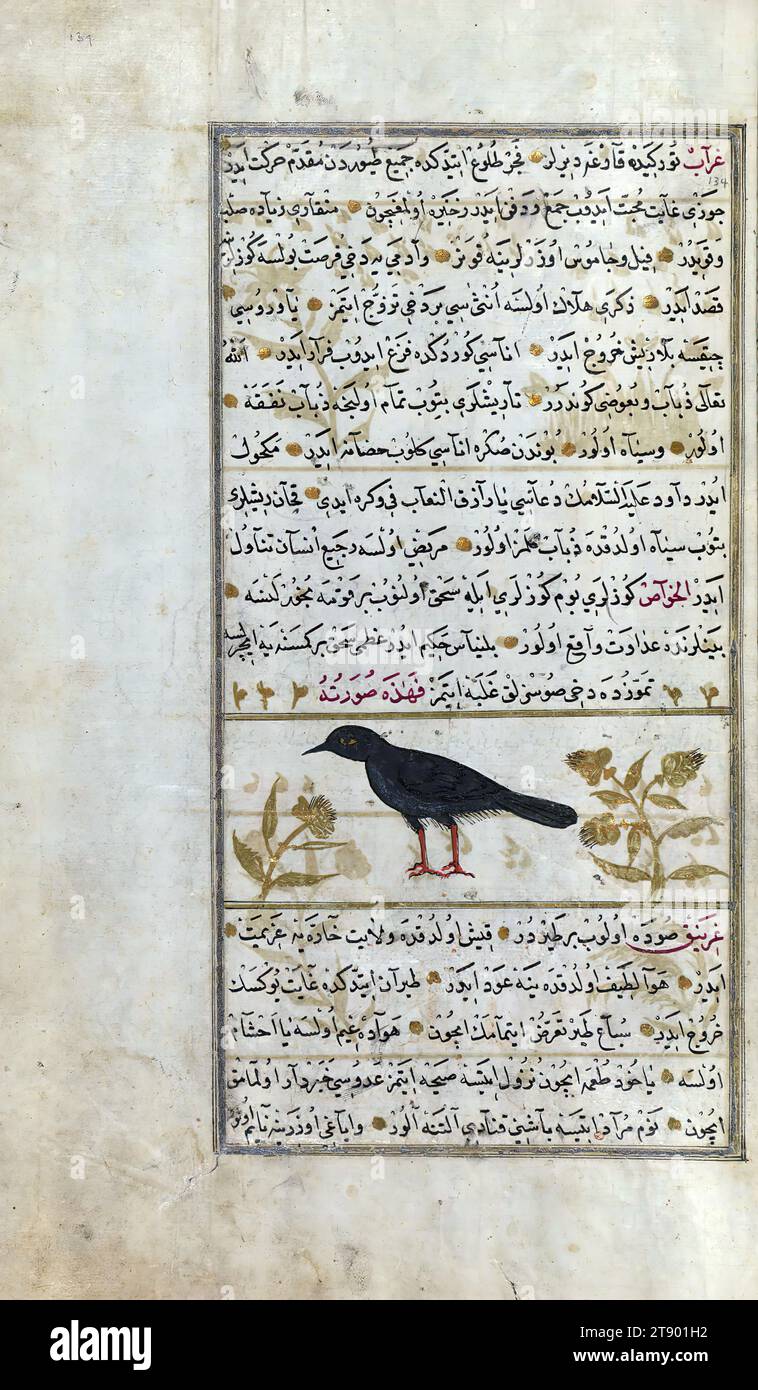 139
غراب تورکیده قارغه دیرلر فجر طلوع ایتدکده جمیع طیوردن مقدم حرکت ایدر
134
جوزی غایت محبت ایدوب جمع و دفن ایدر ذخیره اولمغیچون منقاری زیاده صلب
و قویدر فیل و جاموس اوزرلرینه قونر و آدمی یه دخی فرصت بولسه کوزلرین
قصد ایدر ذکری هلاک اولسه انثی سی بر دخی تزوج ایتمز یاوروسی
چیقسه بلا ریش خروج ایدر اناسی کوردکده فزع ایدوب فرار ایدر الله
تعالی ذباب و بعوضی کوندرر تا ریشلری بتوب تمام اولنجه ذباب نفقه
اولور و سیاه اولور بوندن صکره اناسی کلوب حضانه ایدر مکحول
ایدر داود علیه السلامک دعاسی یا رازق النعاب فی وکره ایدی قچان ریشلری
بتوب سیاه اولدقده ذباب کلمز اولور مریض اولسه رجیع انسان تناول
ایدر الخواص کوزلری بوم کوزلری ایله سحق اولنوب بر قومه بخور لنسه
بینلرنده عداوت واقع اولور بلنیاس حکیم ایدر عظمی سحق بر کمسنه یه ایچرلسه
تموزده دخی صوسزلق غلبه ایتمز فهذه صورته
غرنیق صوده اولور بر طیردر قیش اولدقده ولایت حاره یه عزیمت
ایدر هوا لطیف اولدقده ینه عود ایدر طیران ایتدکده غایت یوکسک
خروج ایدر سباع طیر تعرض ایتمامک ایچون هواده غیم اولسه یا اخشام
اولسه یاخود طعمه ایچون نزول ایتسه صیحه ایتمز عدوسی خبردار اولمامق
ایچون نوم مراد ایتسه باشنی قنادی آلتنه آلور و ایاغی اوزرینه نایم اولور
alamy
Image ID: 2T901H2
www.alamy.com